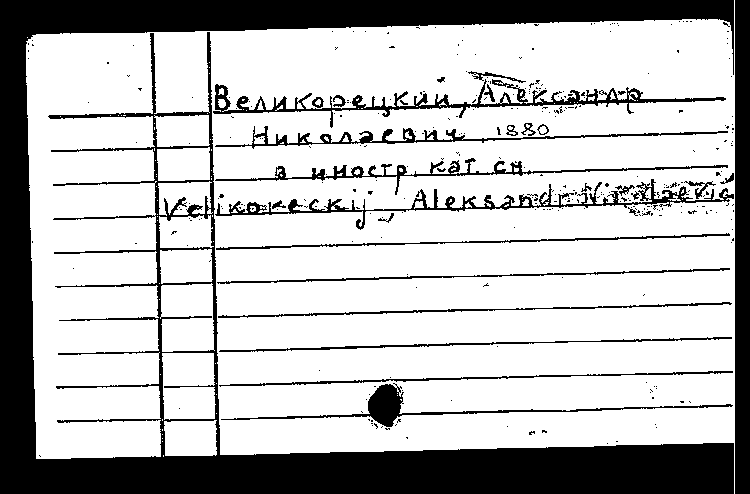 Великорецкий, Александр
Николаевич, 1880
в иностр. кат. см.
Velikoreckij, Aleksandr Nikolaevič